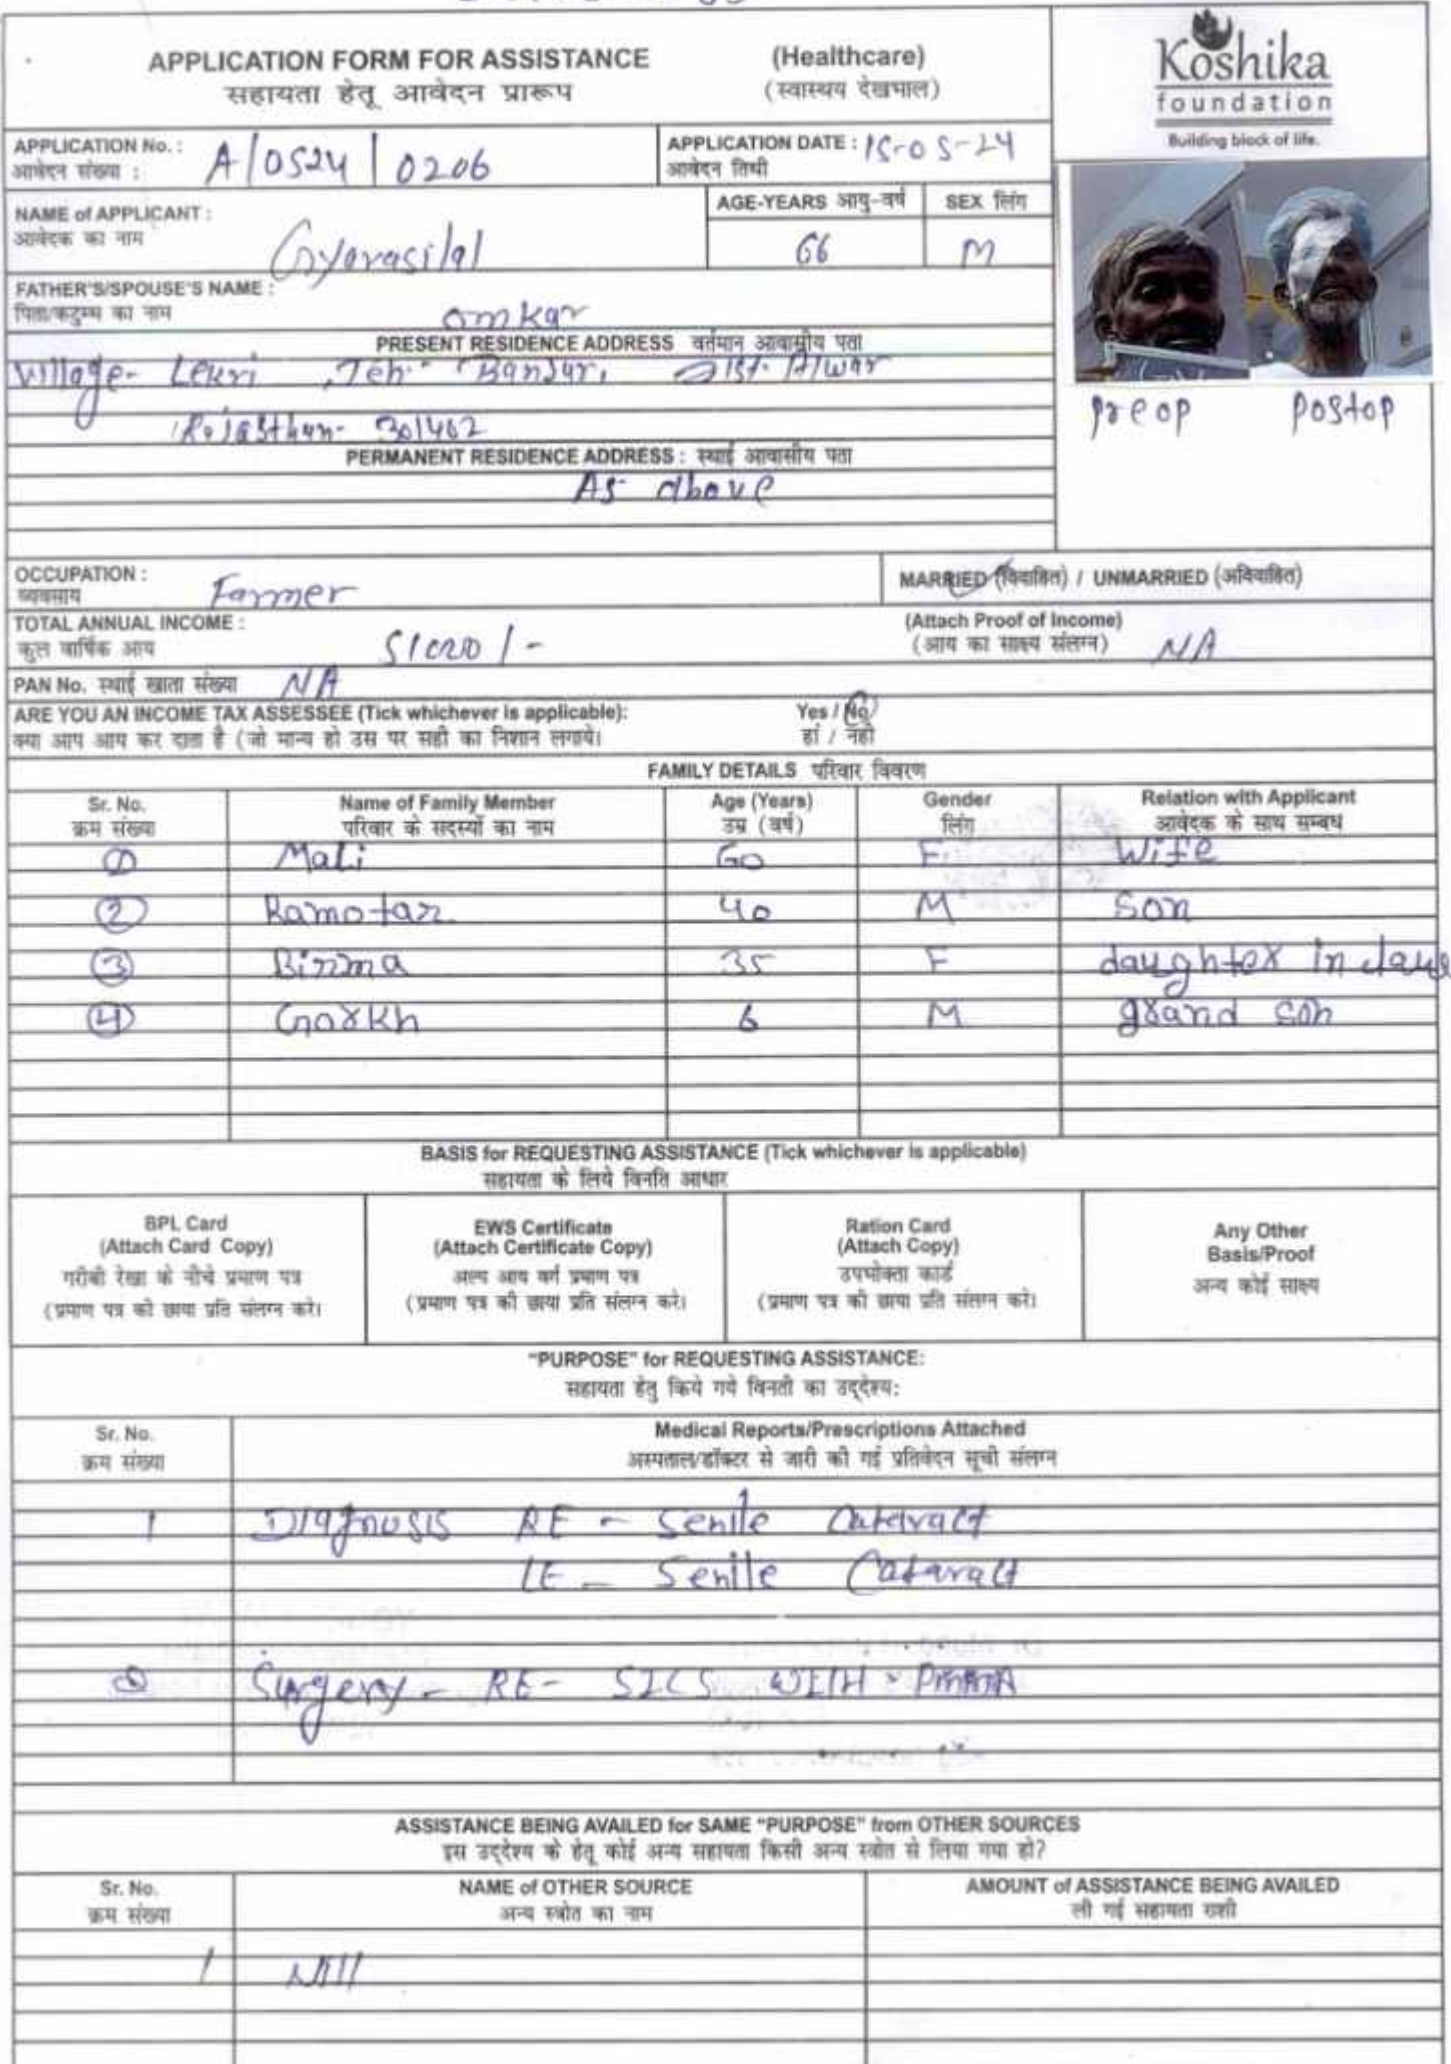 APPLICATION FORM FOR ASSISTANCE (Healthcare)
सहायता हेतू आवेदन प्रारूप (स्वास्थय देखभाल)
Koshika
foundation
Building block of life.
APPLICATION No. : A/0524/0206
आवेदन संख्या :
APPLICATION DATE : 15-05-24
आवेदन तिथी
NAME of APPLICANT : Gyarasilal
आवेदक का नाम
AGE-YEARS आयु-वर्ष 66
SEX लिंग M
FATHER'S/SPOUSE'S NAME : omkar
पिता/कटुम्ब का नाम
PRESENT RESIDENCE ADDRESS वर्तमान आवासीय पता
Village- Lekri , Teh- Bansur, Dist. Alwar
Rajasthan- 301402
preop postop
PERMANENT RESIDENCE ADDRESS : स्थाई आवासीय पता
As above
OCCUPATION : Farmer
व्यवसाय
MARRIED (विवाहित) / UNMARRIED (अविवाहित)
TOTAL ANNUAL INCOME :
कुल वार्षिक आय
(Attach Proof of Income)
(आय का साक्ष्य संलग्न) NA
PAN No. स्थाई खाता संख्या NA
ARE YOU AN INCOME TAX ASSESSEE (Tick whichever is applicable): Yes / No
क्या आप आय कर दाता है (जो मान्य हो उस पर सही का निशान लगाये। हां / नही
FAMILY DETAILS परिवार विवरण
Sr. No. Name of Family Member Age (Years) Gender Relation with Applicant
क्रम संख्या परिवार के सदस्यों का नाम उम्र (वर्ष) लिंग आवेदक के साथ सम्बध
1 Mali 60 F Wife
2 Ramotar 40 M Son
3 Birma 35 F daughter in law
4 Gorkh 6 M grand son
BASIS for REQUESTING ASSISTANCE (Tick whichever is applicable)
सहायता के लिये विनति आधार
BPL Card
(Attach Card Copy)
गरीबी रेखा के नीचे प्रमाण पत्र
(प्रमाण पत्र की छाया प्रति संलग्न करे।
EWS Certificate
(Attach Certificate Copy)
अल्प आय वर्ग प्रमाण पत्र
(प्रमाण पत्र की छाया प्रति संलग्न करे।
Ration Card
(Attach Copy)
उपभोक्ता कार्ड
(प्रमाण पत्र की छाया प्रति संलग्न करे।
Any Other
Basis/Proof
अन्य कोई साक्ष्य
"PURPOSE" for REQUESTING ASSISTANCE:
सहायता हेतु किये गये विनती का उद्देश्य:
Sr. No. Medical Reports/Prescriptions Attached
क्रम संख्या अस्पताल/डॉक्टर से जारी की गई प्रतिवेदन सूची संलग्न
1 Diagnosis RE - Senile Cataract
LE - Senile Cataract
2 Surgery - RE- SICS WITH PMMA
ASSISTANCE BEING AVAILED for SAME "PURPOSE" from OTHER SOURCES
इस उद्देश्य के हेतू कोई अन्य सहायता किसी अन्य स्त्रोत से लिया गया हो?
Sr. No. NAME of OTHER SOURCE AMOUNT of ASSISTANCE BEING AVAILED
क्रम संख्या अन्य स्त्रोत का नाम ली गई सहायता राशी
1 Nill